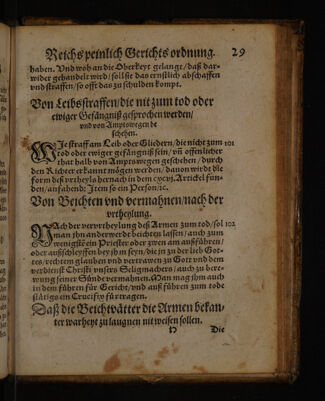 Reichs peinlich Gerichts ordnung. 29
haben. Und wo an die Oberkeyt gelangt/ daß dar-
wider gehandelt wird/ soll sie das ernstlich abschaffen
und straffen/ so offt das zu schulden kompt.
Von Leibsstraffen/ die nit zum tod oder
ewiger Gefängniß gesprochen werden/
und von Amptswegen be
schehen.
WIe straff am Leib oder Gliedern/ die nicht zum 101
tod oder ewiger gefängniß sein/ und öffentlicher
that halb von Amptswegen geschehen/ durch
den Richter erkannt mögen werden/ davon wirdt die
form deß vrtheyls hernach in dem cxcvj. Artickel fun-
den/ anfahend: Item so ein Person/ ꝛc.
Von Beichten und vermahnen/ nach der
vrtheylung.
NAch der vervrtheylung deß Armen zum tod/ sol 102
man ihn anderwerd beichten lassen/ auch zum
wenigste ein Priester oder zwen am außführen/
oder außschleyffen bey ihm seyn/ die in zu der lieb Got-
tes/ rechtem glauben und vertrawen zu Gott und dem
verdienst Christi unsers Seligmachers/ auch zu bere-
wung seiner Sünd vermahnen. Man mag ihm auch
in dem führen für Gericht/ und auß führen zum tode
stätigs ein Crucifix fürtragen.
Daß die Beichtvätter die Armen bekan-
ter warheyt zu laugnen nit weisen sollen.
Die